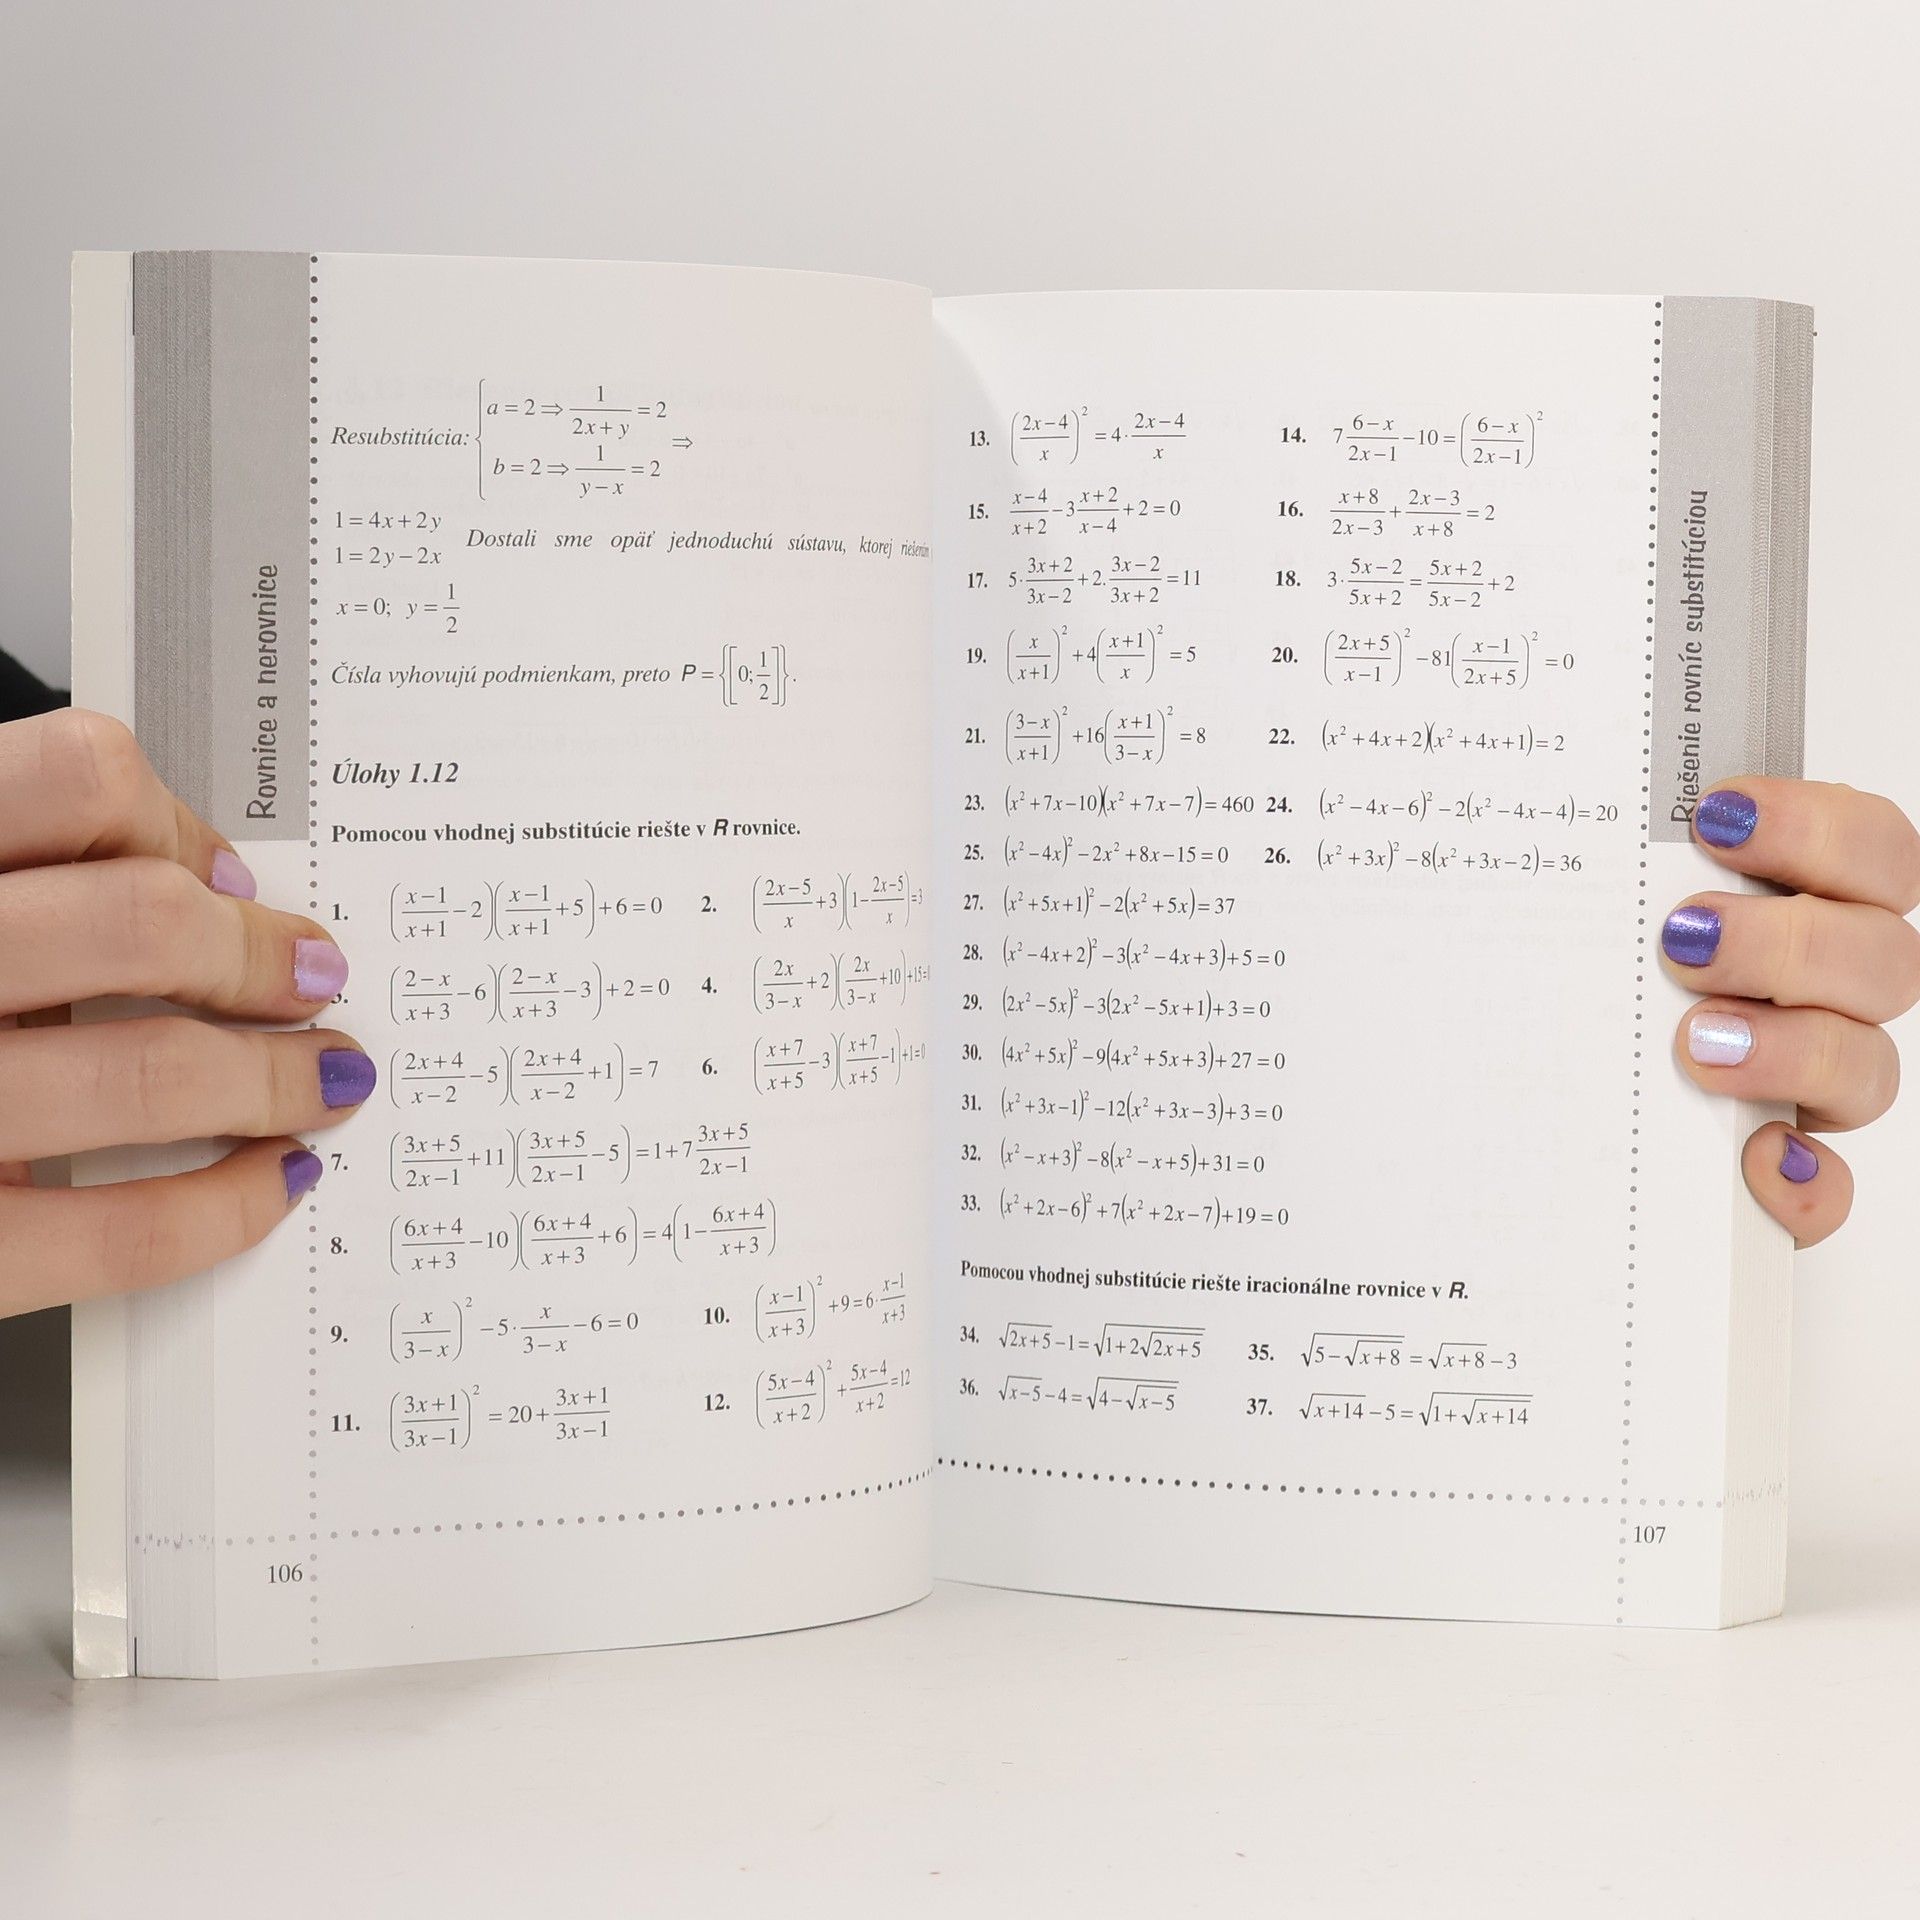 Rovnice a nerovnice
Resubstitúcia: { a = 2 ⇒ 1/(2x + y) = 2
b = 2 ⇒ 1/(y − x) = 2 ⇒
1 = 4x + 2y
1 = 2y − 2x Dostali sme opäť jednoduchú sústavu, ktorej riešením
x = 0; y = 1/2
Čísla vyhovujú podmienkam, preto P = {[0; 1/2]}.
Úlohy 1.12
Pomocou vhodnej substitúcie riešte v R rovnice.
1. ((x−1)/(x+1) − 2)((x−1)/(x+1) + 5) + 6 = 0 2. ((2x−5)/x + 3)(1 − (2x−5)/x) = 3
((2−x)/(x+3) − 6)((2−x)/(x+3) − 3) + 2 = 0 4. (2x/(3−x) + 2)(2x/(3−x) + 10) + 15 =
((2x+4)/(x−2) − 5)((2x+4)/(x−2) + 1) = 7 6. ((x+7)/(x+5) − 3)((x+7)/(x+5) − 1) + 1 = 0
7. ((3x+5)/(2x−1) + 11)((3x+5)/(2x−1) − 5) = 1 + 7 (3x+5)/(2x−1)
8. ((6x+4)/(x+3) − 10)((6x+4)/(x+3) + 6) = 4(1 − (6x+4)/(x+3))
9. (x/(3−x))² − 5 · x/(3−x) − 6 = 0 10. ((x−1)/(x+3))² + 9 = 6 · (x−1)/(x+3)
11. ((3x+1)/(3x−1))² = 20 + (3x+1)/(3x−1) 12. ((5x−4)/(x+2))² + (5x−4)/(x+2) = 12
106
13. ((2x−4)/x)² = 4 · (2x−4)/x 14. 7 (6−x)/(2x−1) − 10 = ((6−x)/(2x−1))²
15. (x−4)/(x+2) − 3 (x+2)/(x−4) + 2 = 0 16. (x+8)/(2x−3) + (2x−3)/(x+8) = 2
17. 5 · (3x+2)/(3x−2) + 2 . (3x−2)/(3x+2) = 11 18. 3 · (5x−2)/(5x+2) = (5x+2)/(5x−2) + 2
19. (x/(x+1))² + 4((x+1)/x)² = 5 20. ((2x+5)/(x−1))² − 81((x−1)/(2x+5))² = 0
21. ((3−x)/(x+1))² + 16((x+1)/(3−x))² = 8 22. (x² + 4x + 2)(x² + 4x + 1) = 2
23. (x² + 7x − 10)(x² + 7x − 7) = 460 24. (x² − 4x − 6)² − 2(x² − 4x − 4) = 20
25. (x² − 4x)² − 2x² + 8x − 15 = 0 26. (x² + 3x)² − 8(x² + 3x − 2) = 36
27. (x² + 5x + 1)² − 2(x² + 5x) = 37
28. (x² − 4x + 2)² − 3(x² − 4x + 3) + 5 = 0
29. (2x² − 5x)² − 3(2x² − 5x + 1) + 3 = 0
30. (4x² + 5x)² − 9(4x² + 5x + 3) + 27 = 0
31. (x² + 3x − 1)² − 12(x² + 3x − 3) + 3 = 0
32. (x² − x + 3)² − 8(x² − x + 5) + 31 = 0
33. (x² + 2x − 6)² + 7(x² + 2x − 7) + 19 = 0
Pomocou vhodnej substitúcie riešte iracionálne rovnice v R.
34. √(2x+5) − 1 = √(1 + 2√(2x+5)) 35. √(5 − √(x+8)) = √(x+8) − 3
36. √(x−5) − 4 = √(4 − √(x−5)) 37. √(x+14) − 5 = √(1 + √(x+14))
107
Riešenie rovníc substitúciou